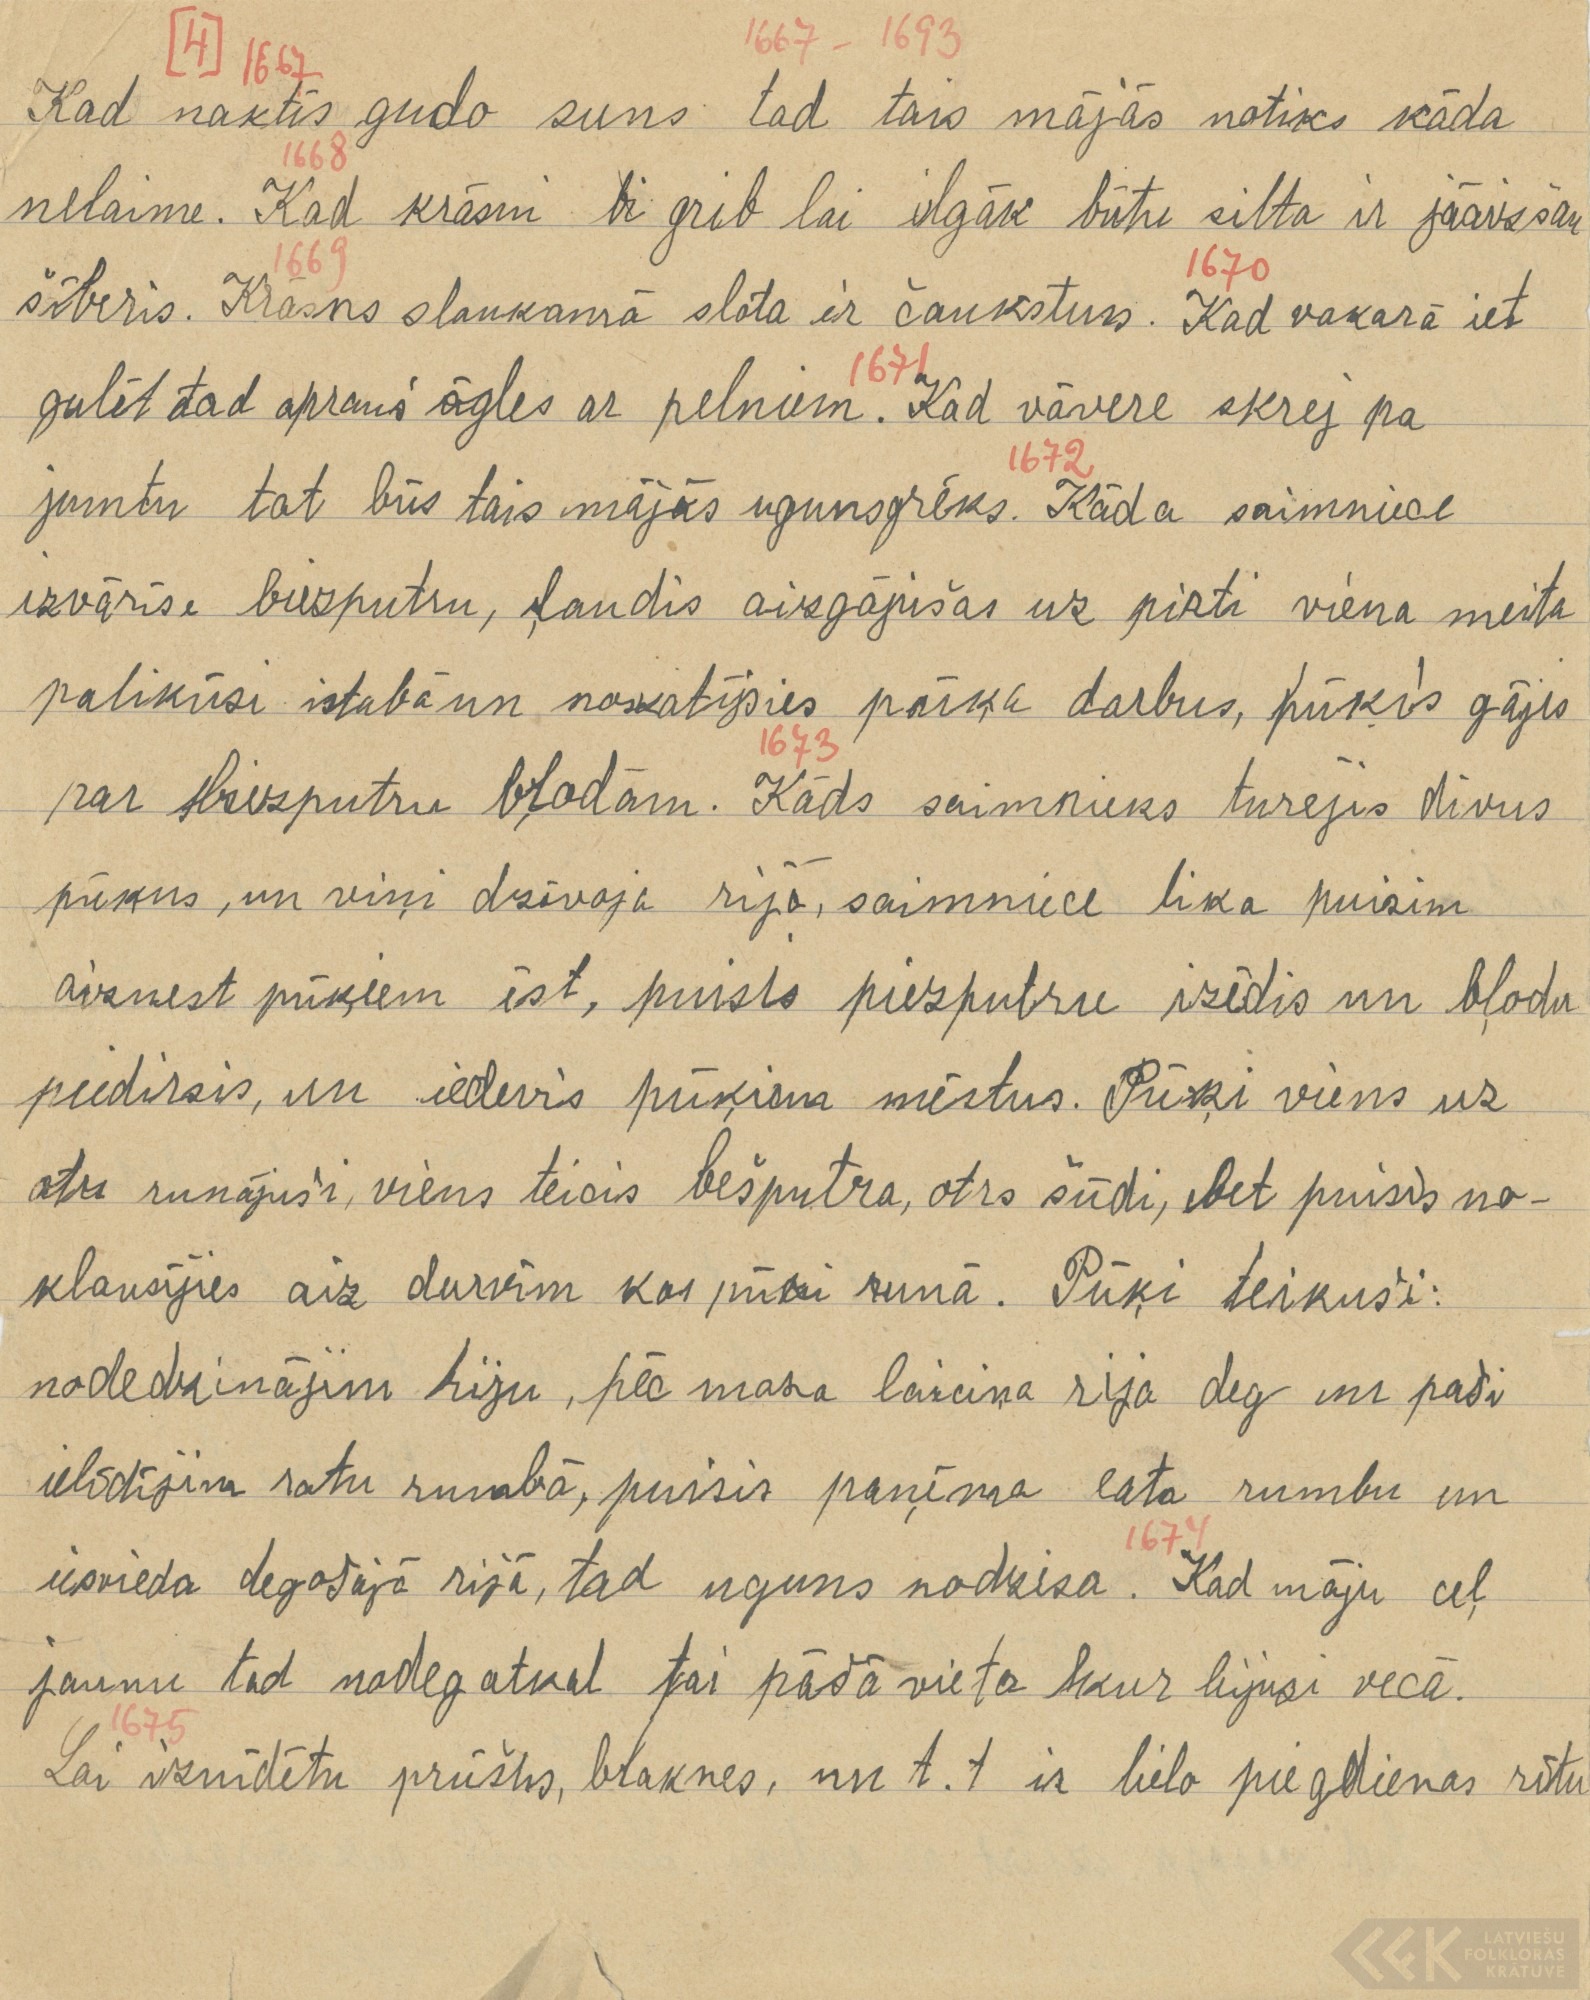 [4] 1667 1667 - 1693
Kad naktīs gudo suns tad tais mājās notiks kāda
1668
nelaime. Kad krāsni grib lai ilgāk būtu silta ir jāaizšau
1669 1670
šīberis. Krāsns slaukamā slota ir čaukstuss. Kad vakarā iet
gulēt tad apraus ōgles ar pelniem. 1671 Kad vāvere skrej pa
1672
jumtu tat būs tais mājās ugunsgrēks. Kāda saimniece
izvārīse biezputru, ļaudis aizgājušas uz pirti viena meita
palikūsi istabā un noskatījsies pūķa darbus, pūķis gājis
1673
par biezputru bļodām. Kāds saimnieks turējis divus
pūkus, un viņi dzīvoja rijā, saimniece lika puisim
aiznest pūķiem ēst, puisis piezputru izēdis un bļodu
piedirsis, un iedevis pūķiem mēstus. Pūķi viens uz
otru runājuši, viens teicis bešputra, otrs šūdi, bet puisis no-
klausījies aiz durvīm kas pūķi runā. Pūķi teikuši:
nodedzinājim riju, pēc maza laiciņa rija deg un paši
ielīdījim ratu rumbā, puisis paņēma rata rumbu un
1674
iesvieda degošajā rijā, tad uguns nodzisa. Kad māju ceļ
jaunu tad nodeg atkal tai pāšā vieta kur bijusi vecā.
1675
Lai iznīdētu prūšus, blaknes, un t. t ir lielo piegdienas rītu
LATVIEŠU
FOLKLORAS
KRĀTUVE